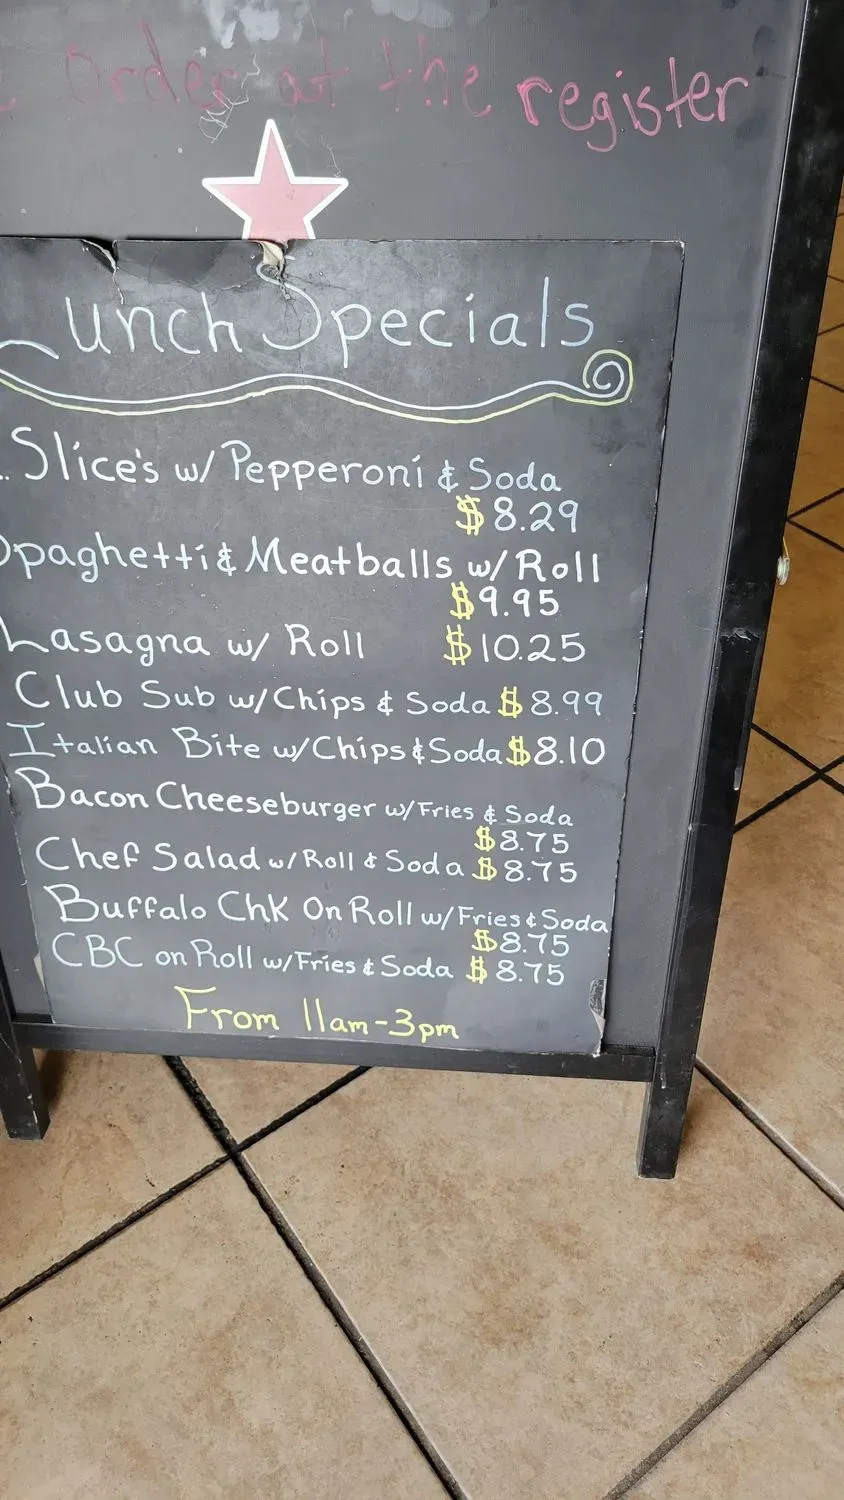 order at the register
Lunch Specials
Slice's w/ Pepperoni & Soda
$8.29
Spaghetti & Meatballs w/ Roll
$9.95
Lasagna w/ Roll $10.25
Club Sub w/ Chips & Soda $8.99
Italian Bite w/ Chips & Soda $8.10
Bacon Cheeseburger w/ Fries & Soda
$8.75
Chef Salad w/ Roll & Soda $8.75
Buffalo Chk On Roll w/ Fries & Soda
$8.75
CBC on Roll w/ Fries & Soda $8.75
From 11am-3pm